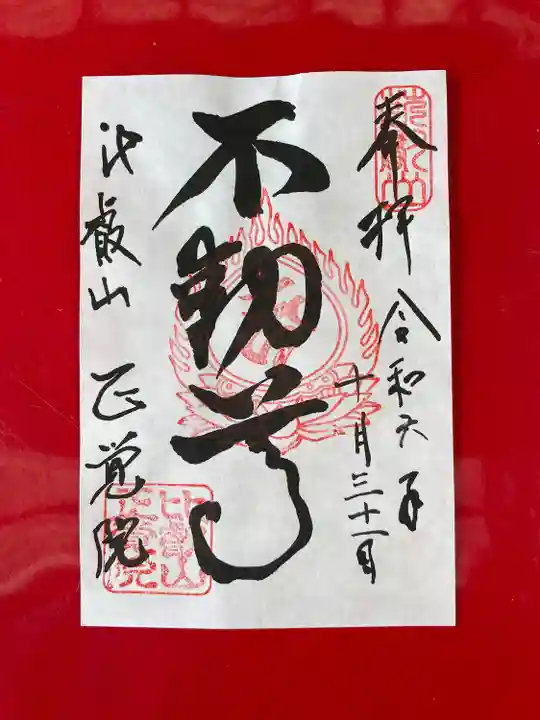 奉拝
令和六年
十月三十一日
不動尊
比叡山 正覚院
比叡山
正覚院